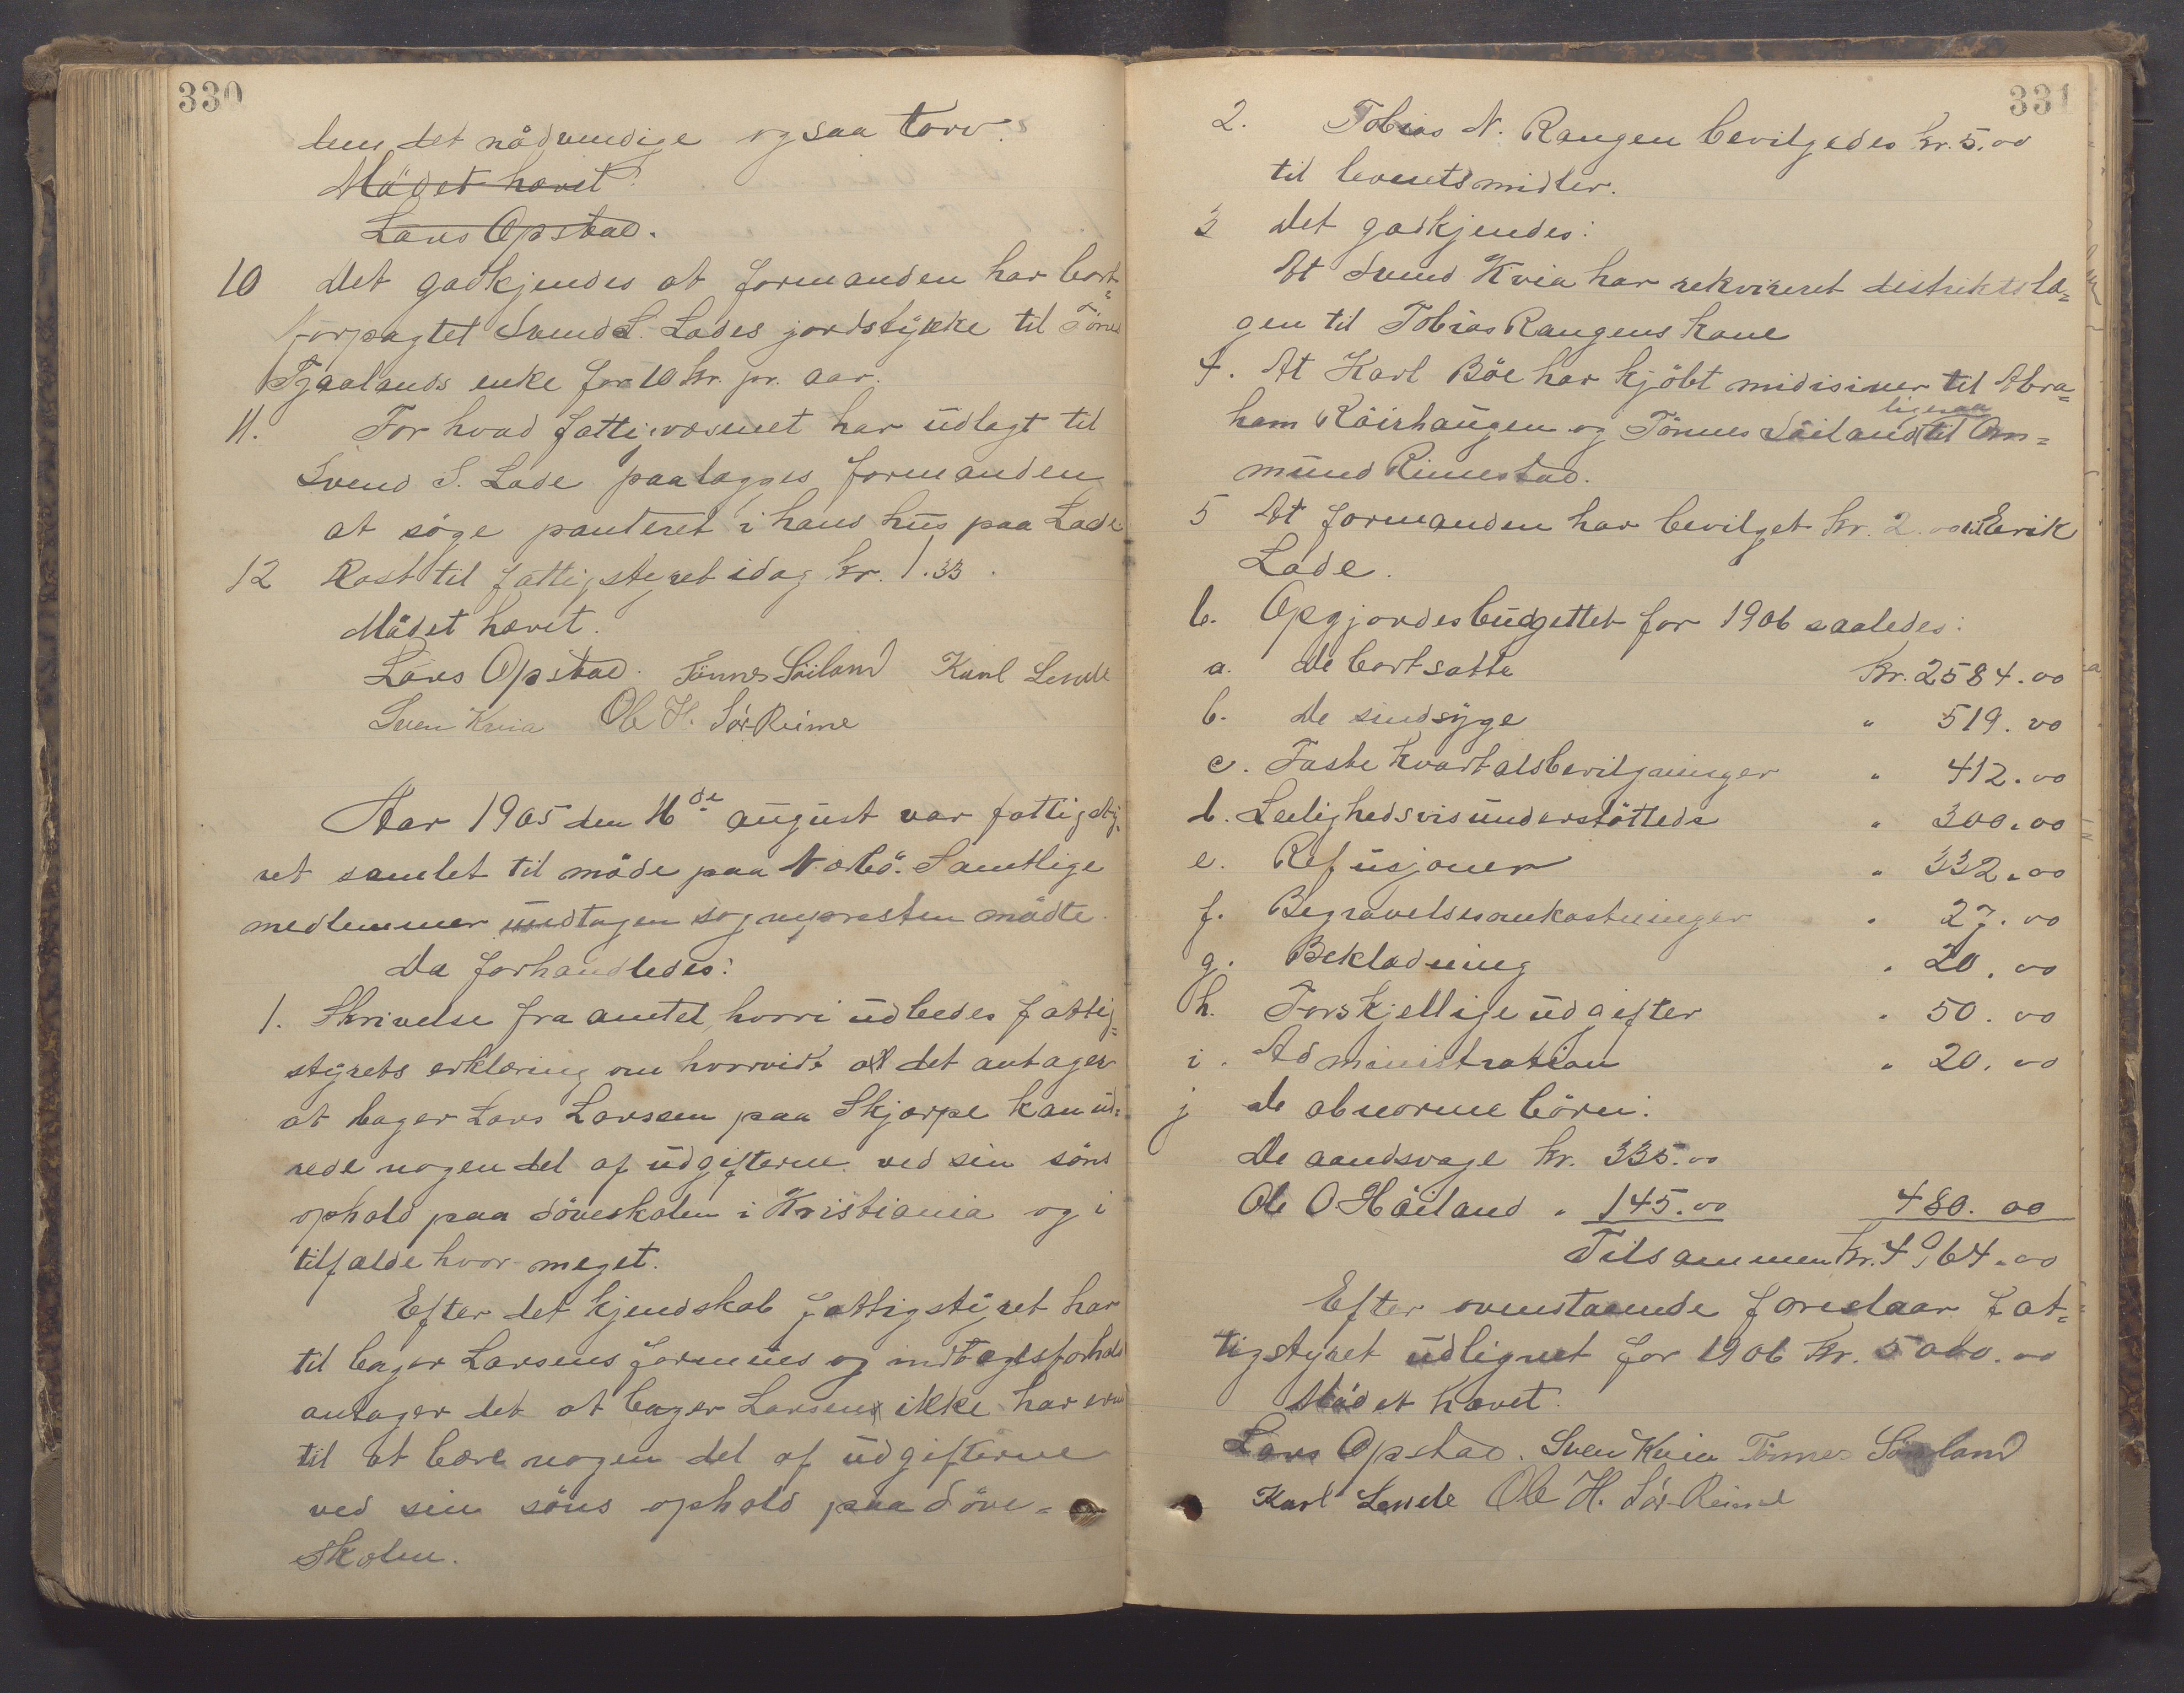 330
den det nådvendige ogsaa torv.
Mödet hævet
Lars Opstad.
10 Det godkjendes at formanden har bort=
forpagtet Svend S. Lades jordstykke til Tönes
Tjaalands enke for 10 kr. pr. aar.
11. For hvad fattigvæsenet har udlagt til
Svend S. Lade paalægges formanden
at söge panteret i hans hus paa Lade
12 Kost til fattigstyret idag kr. 1.33.
Mödet hævet.
Lars Opstad. Tönnes Söiland Karl Lende
Sven Kvia Ole H. Sör-Reime
Aar 1905 den 16de august var fattigsty=
ret samlet til möde paa Nærbö. Samtlige
medlemmer undtagen sognepresten mödte.
Da forhandledes:
1. Skrivelse fra amtet, hvori udbedes fattig=
styrets erklæring om hvorvidt det antager
at bager Lars Larssen paa Skjærpe kan ud=
rede nogen del af udgifterne ved sin söns
ophold paa döveskolen i Kristiania og i
tilfælde hvor meget.
Efter det kjendskab fattigstyret har
til bager Larsens formues og indtægtsforhold
antager det at bager Larsen ikke har evne
til at bære nogen del af udgifterne
ved sin söns ophold paa Döve=
skolen.
331
2. Tobias N. Raugen bevilgedes kr. 5.00
til levnetsmidler.
3 Det godkjendes:
At Svend Kvia har rekvireret distriktslæ=
gen til Tobias Raugens kone
4. At Karl Böe har kjöbt midisiner til Abra=
ligesaa
ham Röirhaugen og Tönnes Söiland til Om=
mund Rimestad.
5 At formanden har bevilget kr. 2.00 til Erik
Lade.
6. Opgjordes budgettet for 1906 saaledes:
a. De bortsatte kr. 2584.00
b. De sindsyge " 519.00
c. Faste kvartalsbevilgninger " 412.00
d. Leilighedsvis understöttede " 300.00
e. Refusjoner " 332.00
f. Begravelsesomkostninger " 27.00
g. Beklædning " 20.00
h. Forskjellige udgifter " 50.00
i. Administration " 20.00
j De abnorme börn:
De aandsvage kr. 335.00
Ole O. Höiland " 145.00 480.00
Tilsammen kr. 4964.00
Efter ovenstaaende foreslaar fat=
tigstyret udlignet for 1906 kr. 5000.00
Mödet hævet.
Lars Opstad. Sven Kvia Tönnes Söiland
Karl Lende Ole H. Sör-Reime